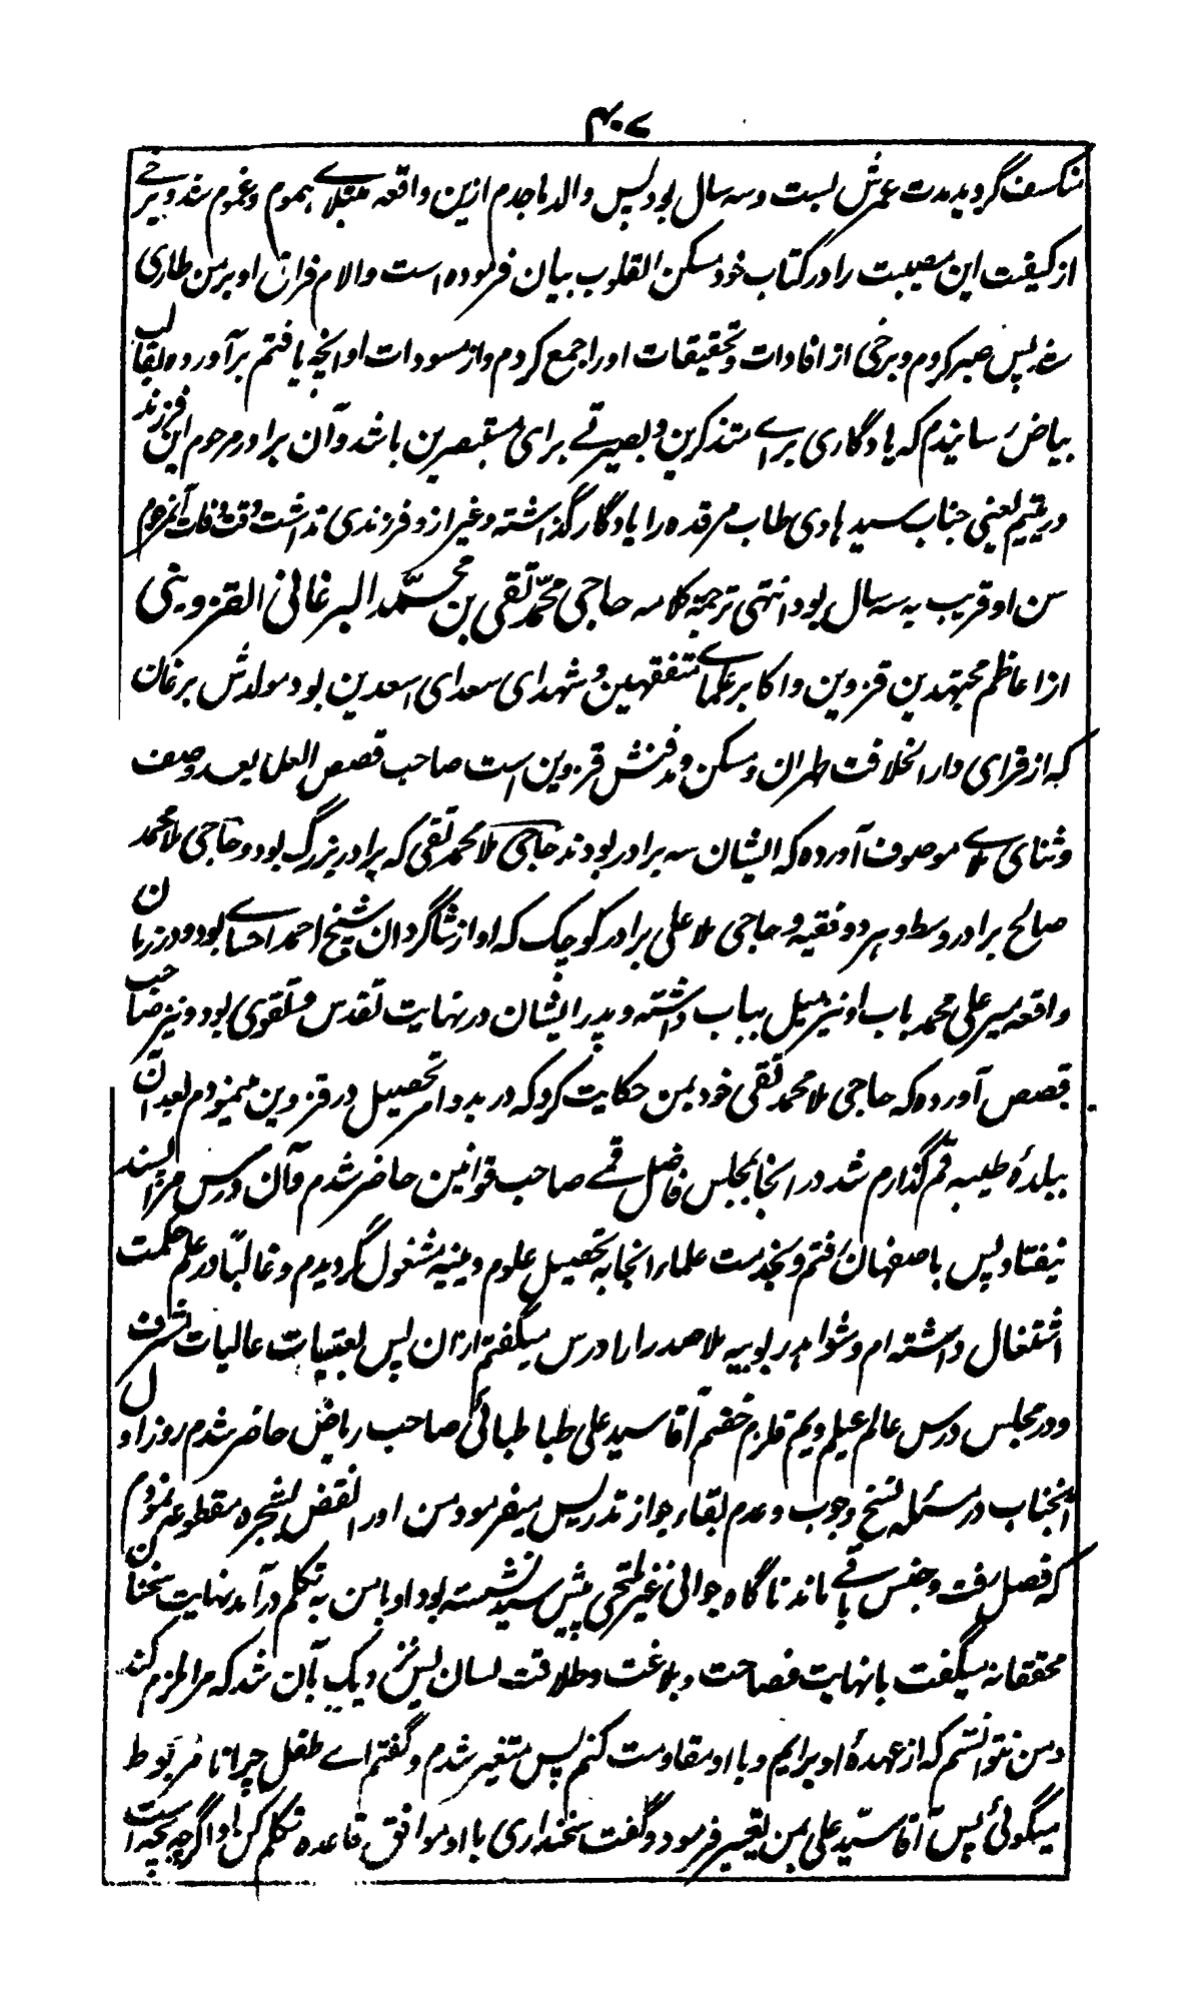 ۴۰۷
منکسف گردید مدت عمرش بست و سه سال بود پس والد ماجدم ازین واقعه مبتلاے هموم و غموم شد و برخے
از کیفیت این مصیبت را در کتاب خود مسکن القلوب بیان فرموده است و الام فراق او بر من طاری
شد پس صبر کردم و برخی از افادات و تحقیقات او را جمع کردم و از مسودات او انچه یافتم برآورده بقالب
بیاض رسانیدم که یادگاری براے متذکرین و بصیرتے برای مستبصرین باشد و آن برادر مرحوم این فرزند
در یتیم یعنی جناب سید هادی طاب مرقده را یادگار گذاشته و غیر از و فرزندی نداشت وقت وفات آنمرحوم
سن او قریب به سه سال بود انتهی ترجمة کلامه حاجی محمّد تقی بن محمّد البرغانی القزوینی
از اعاظم مجتهدین قزوین و اکابر علماے متفقهین و شهدای سعدای اسعدین بود مولدش برغان
که از قرای دار الخلافت طهران و مسکن و مدفنش قزوین است صاحب قصص العلما بعد وصف
و ثنای ملاے موصوف آورده که ایشان سه برادر بودند حاجی ملا محمد تقی که برادر بزرگ بود و حاجی ملا محمد
صالح برادر وسط و هر دو فقیه و حاجی ملا علی برادر کوچک که او از شاگردان شیخ احمد احساے بود و در زمان
واقعه میر علی محمد باب او نیز میل بباب داشته و پدر ایشان در نهایت تقدس و تقوی بود و نیز صاحب
قصص آورده که حاجی ملا محمد تقی خود بمن حکایت کرد که در بدو امر تحصیل در قزوین مینمودم بعد آن
ببلدهٔ طیبه قم گذارم شد در انجا بمجلس فاضل قمے صاحب قوانین حاضر شدم و آن درس مرا پسند
نیفتاد پس باصفهان رفتم و بخدمت علماء انجا به تحصیل علوم دینیه مشغول گردیدم و غالبًا در علم حکمت
اشتغال داشته ام و شواهد ربوبیه ملا صدرا را درس میگفتم ازان پس بعتبات عالیات مشرف
و در مجلس درس عالم عیلم و یم قلزم خضم آقا سید علی طباطبائی صاحب ریاض حاضر شدم روز اول
آنجناب در مسئله نسخ وجوب و عدم بقاء جواز تدریس میفرمود من او را نقض بشجره مقطوعه نمودم
که فصل رفت و جنس باقے ماند ناگاه جوانی غیر ملتحی پیش سید نشسته بود او با من به تکلم درآمد نهایت سخنان
محققانه میگفت با نهایت فصاحت و بلاغت و طلاقت لسان پس نزدیک بآن شد که مرا ملزم کند
و من نتوانستم که از عهدهٔ او برایم و با او مقاومت کنم پس متغیر شدم و گفتم اے طفل چرا نامربوط
میگوئی پس آقا سیّد علی بمن تغیر فرمود و گفت سخنداری با او موافق قاعده تکلم کن او اگرچه بچه است